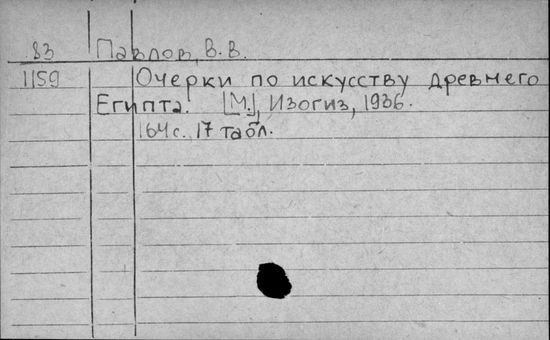 83 Павлов, В.В.
1159 Очерки по искусству древнего
Египта. [М.], Изогиз, 1936.
164 с. 17 табл.